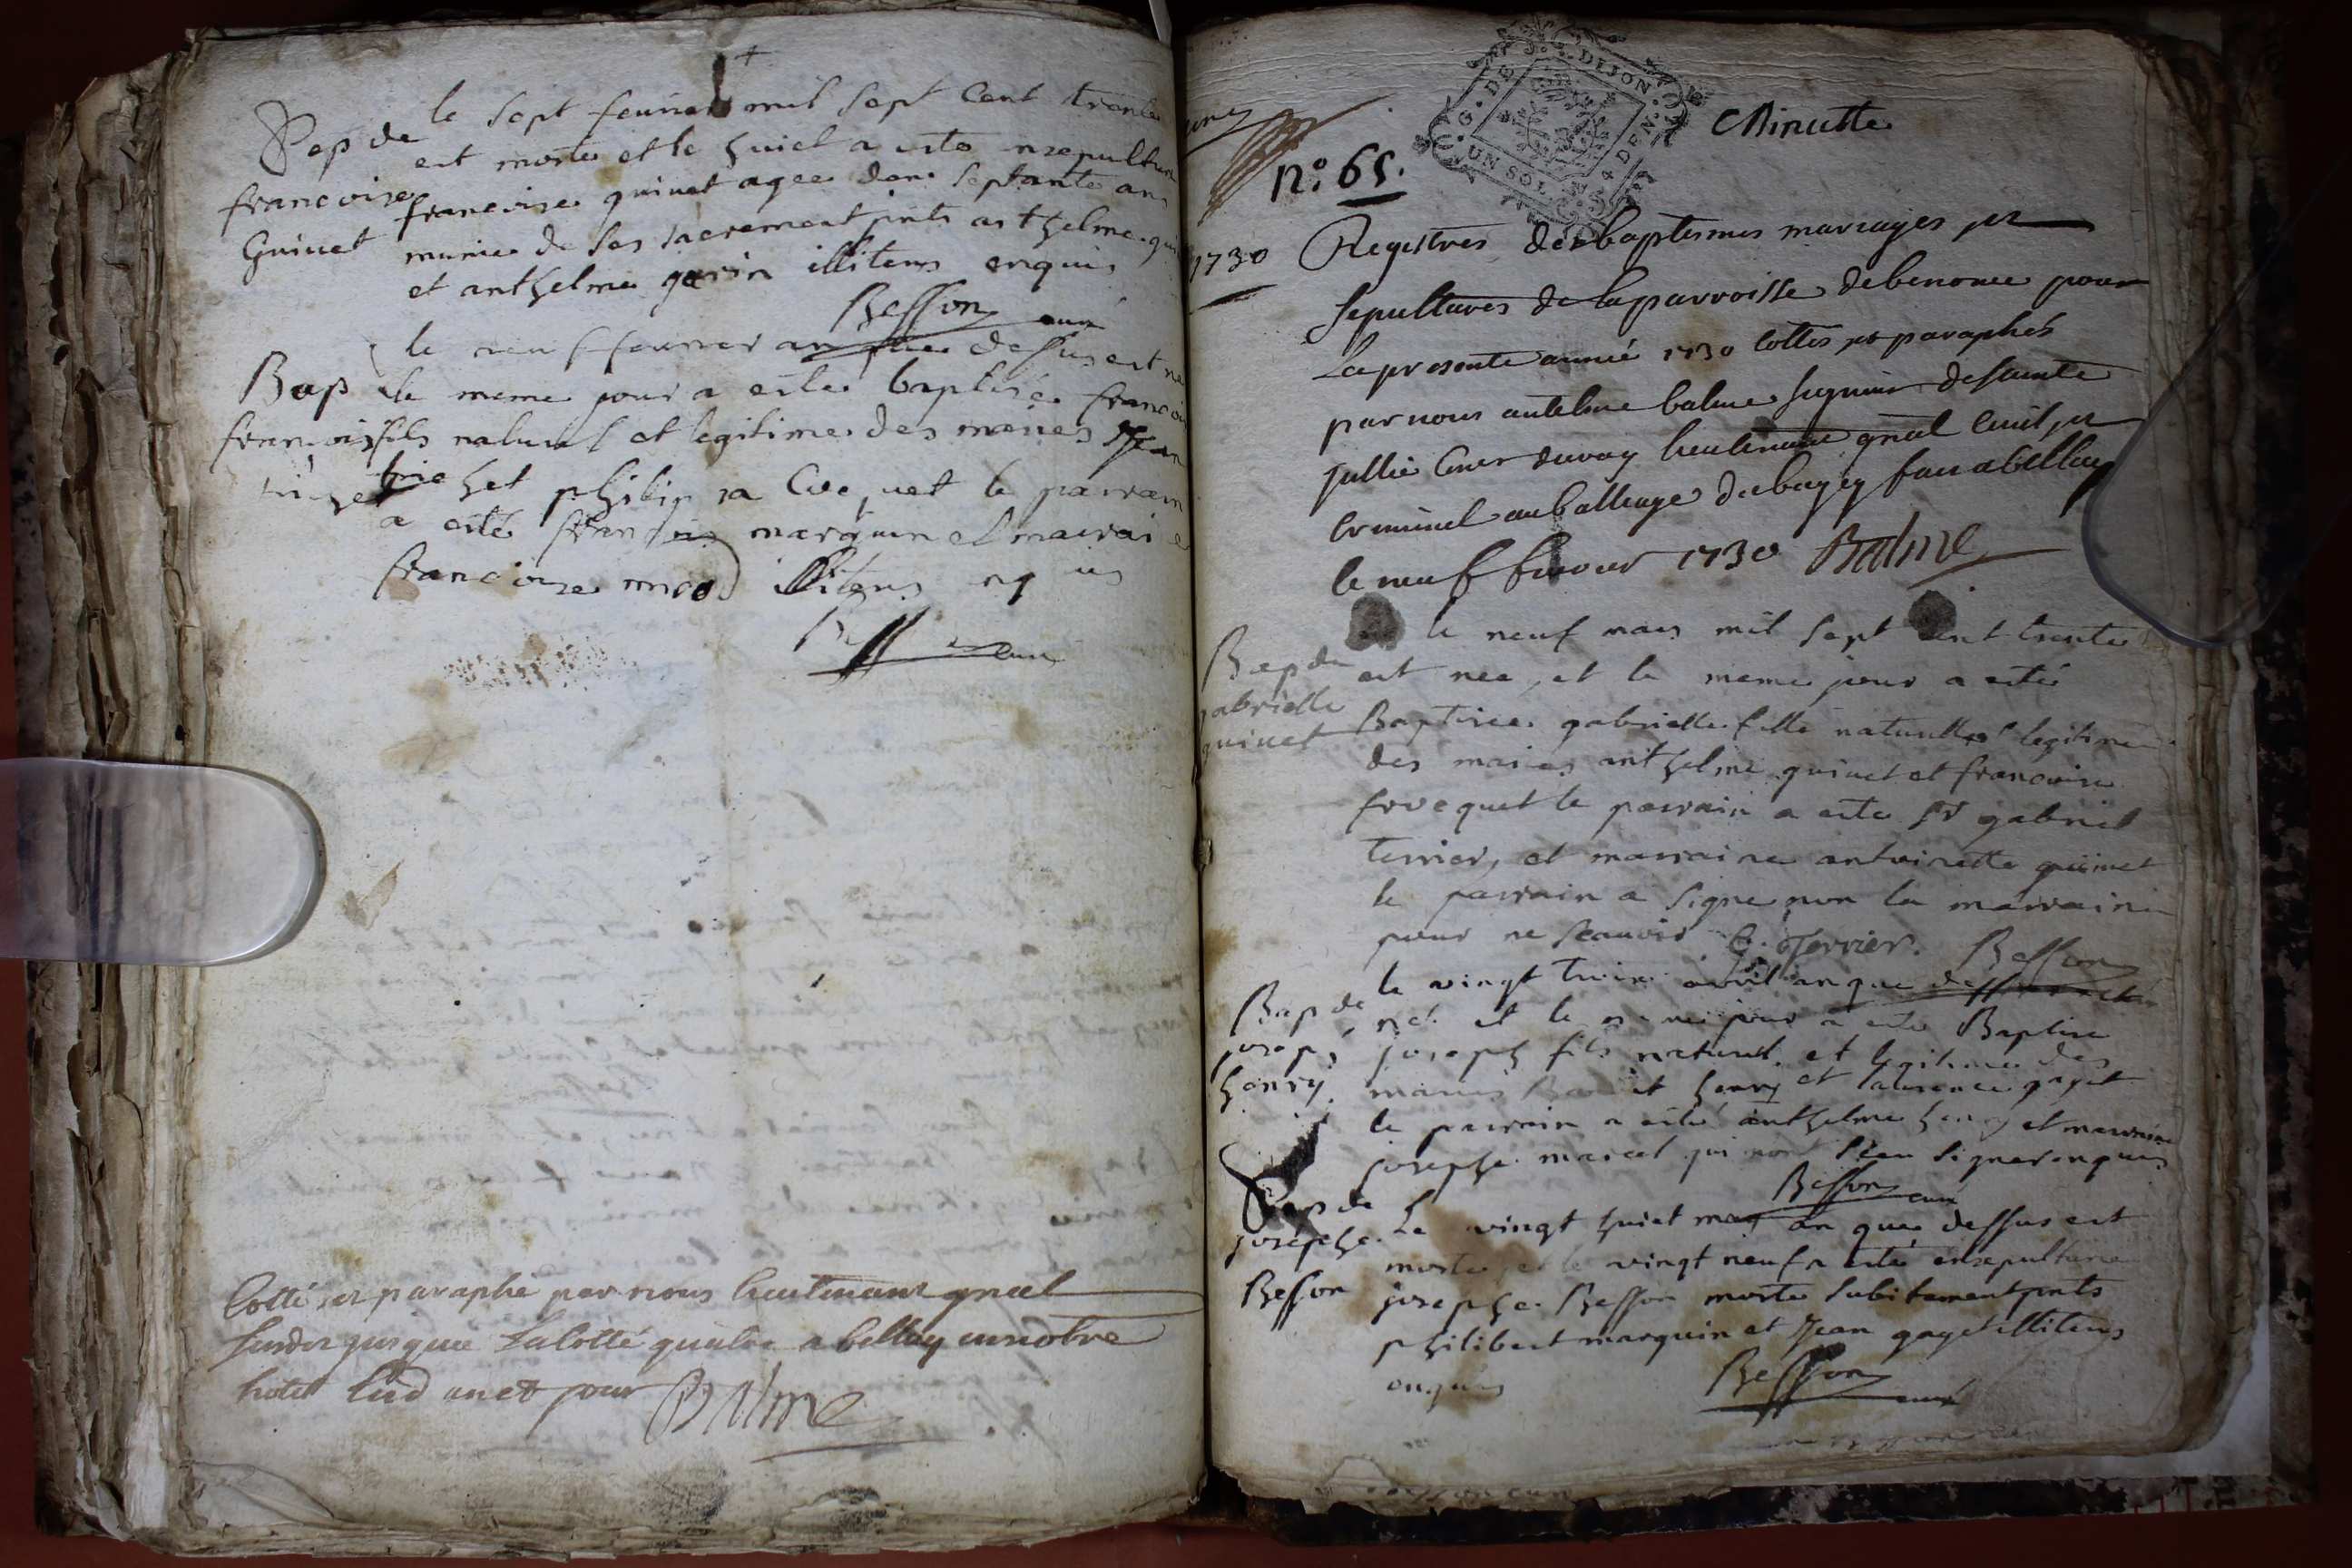 Sep de
francoise
Guinet
le sept feurier mil sept cent trente
est morte et le huict a esté ensepulturé
francoise guinet agee denv septante ans
munie de ses sacrement pnts anthelme gui
et anthelme garin illiterés enquis
Besson curé
Bap de
francois
trichet
le neuf feurier an que dessus est né
et le meme jour a esté baptisé francois
fils naturel et legitime des mariés Jean
trichet et philipa Cocquet le parrain
a esté francois marquin et mairaine
francoise illiterés enquis
Besson curé
Cotté et paraphé par nous lieutenant gnal
susdit jusque La cotté quatre a belley en notre
hotel Lud an et jour Balme
G. DE DIJON
UN SOL 4 DEN.
Minutte
n.° 65.
1730
Registres des baptesmes mariages et
sepultures de la parroisse de benonce pour
La presente année 1730 cottés et paraphés
par nous antelme balme seigneur de sainte
jullie Coner du roy lieutenant gnal Civil et
criminel au balliage du bugey fait a belley
le neuf fevrier 1730 Balme
Bap de
gabrielle
guinet
le neuf mars mil sept cent trente
est nee, et le meme jour a esté
Baptisee gabrielle fille naturelle et legitime
des mariés anthelme guinet et francoise
frocquet le parrain a esté sr gabriel
terrier, et marraine antoinette guinet
le parrain a signé non la marraine
pour ne scauoir G. Terrier. Besson
Bap de
joseph
henry
le vingt trois avril an que dessus est
né et le meme jour a esté Baptisé
joseph fils naturel et legitime des
mariés henry et laurence gayet
le parrain a esté anthelme henry et marraine
josephe marcel qui nont sceu signer enquis
Besson curé
Sep de
josephe
Besson
Le vingt huict may an que dessus est
morte et le vingt neuf a esté ensepulturee
josephe Besson morte subitement pnts
philibert marquin et Jean gayet illiterés
enquis
Besson curé